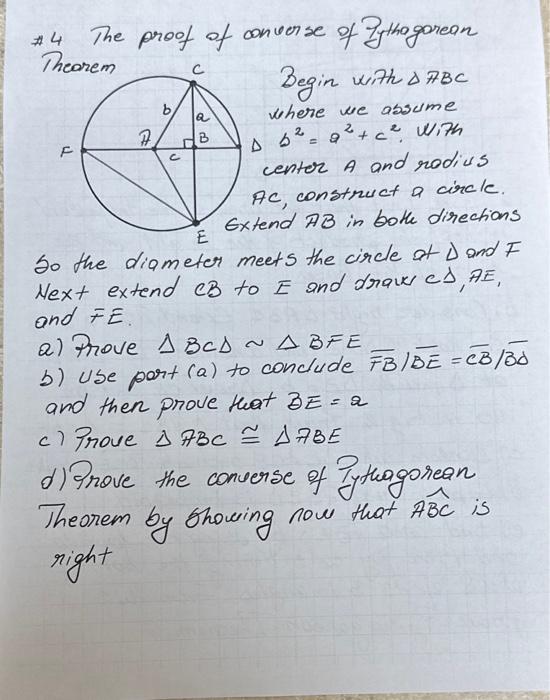 #4 The proof of converse of Pythagorean
Theorem
C
b
a
A
B
c
F
D
E
Begin with Δ ABC
where we assume
b² = a² + c². With
center A and radius
AC, construct a circle.
Extend AB in both directions
So the diameter meets the circle at D and F
Next extend CB to E and draw CD, AE,
and FE.
a) Prove Δ BCD ~ Δ BFE
b) Use part (a) to conclude FB/BE = CB/BD
and then prove that BE = a
c) Prove Δ ABC ≅ Δ ABE
d) Prove the converse of Pythagorean
Theorem by showing now that ABC is
right